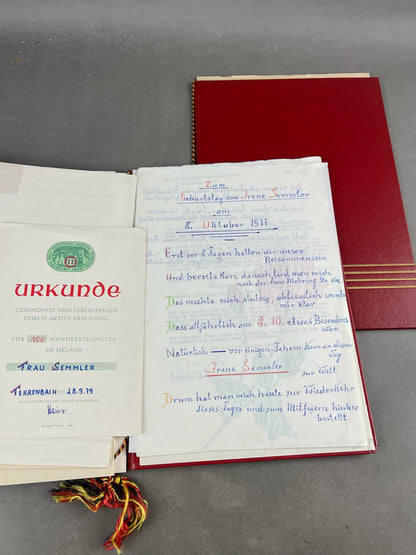 URKUNDE
GESUNDHEIT UND LEBENSFREUDE
DURCH AKTIVE ERHOLUNG
FÜR 100 WANDERKILOMETER
IM URLAUB
FRAU SEMMLER
FEHRENBACH 28.9.79
Zum
Geburtstag von Irene Semmler
am
8. Oktober 1977
Erst vor 8 Tagen hatten wir unser
Beisammensein
Und bereits kurz danach lud man mich
nach der Franz Mehring Str. ein
Das machte mich stutzig, schliesslich wurde
mir klar
Dass alljährlich am 8. 10. etwas Besonderes
war
Natürlich — vor einigen Jahren kam an diesem
Tag
Irene Semmler zur Welt
Drum hat man mich heute zur Wiederkehr
dieses Tages und zum Mitfeiern hierher
bestellt.